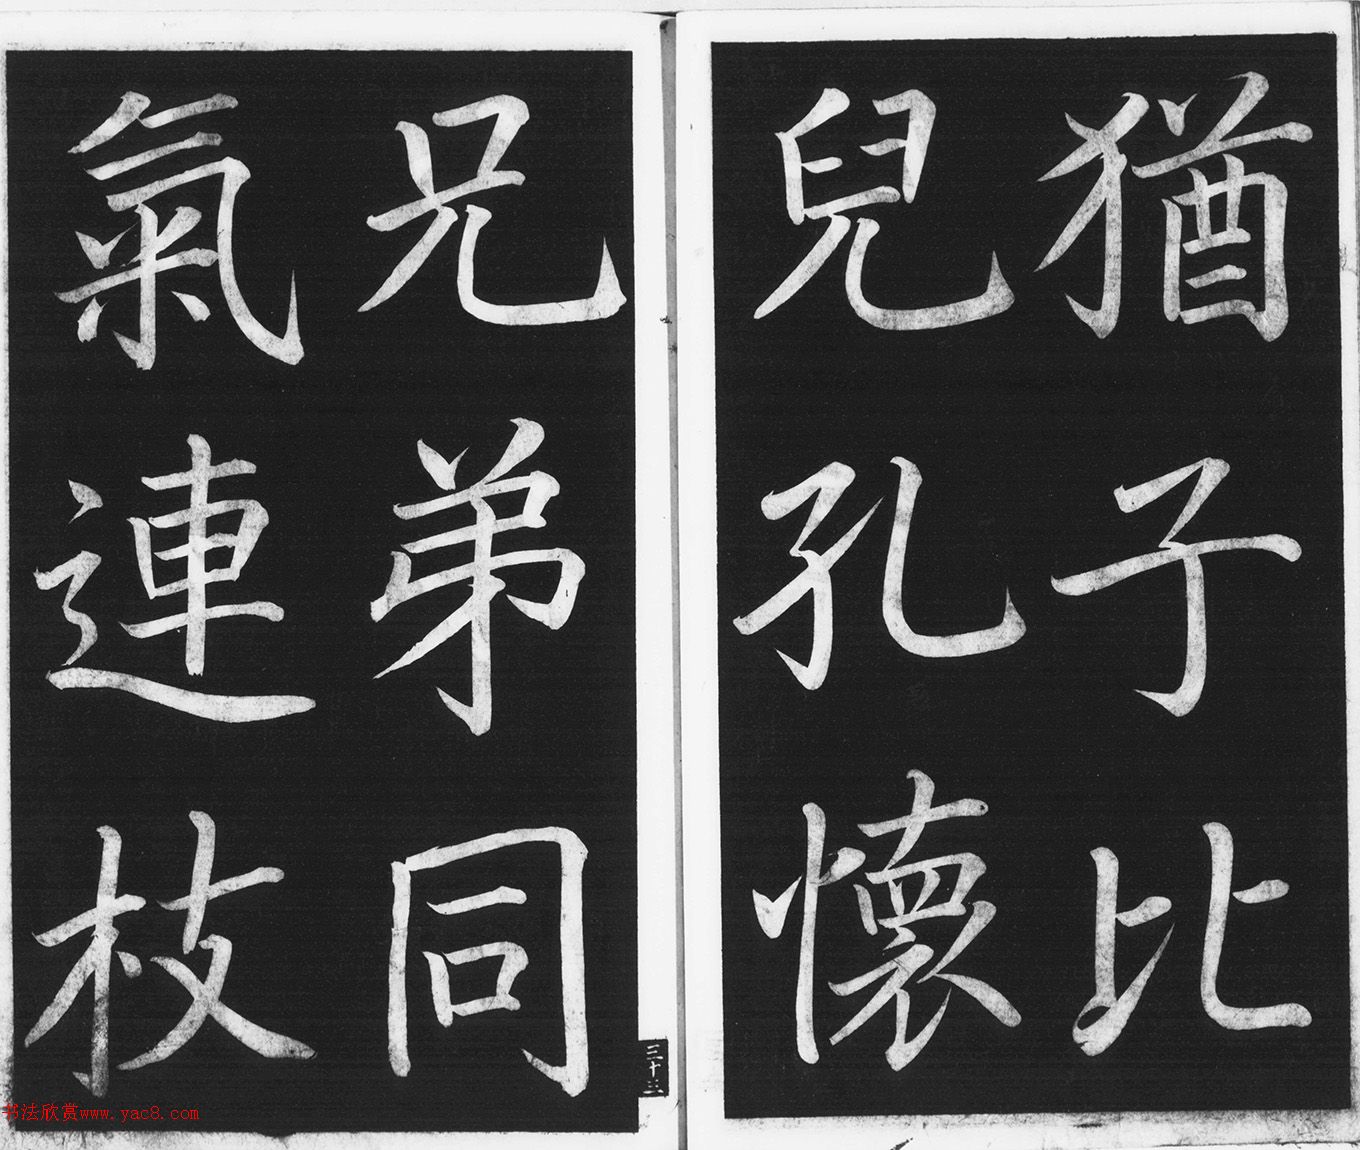 猶子比
兒孔懷
兄弟同
氣連枝
三十三
书法欣赏www.yac8.com